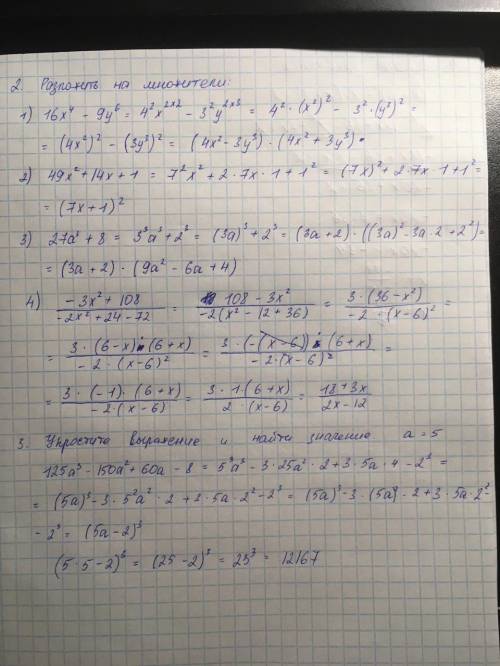 2. Разложить на множители:
1) 16x⁴ - 9y⁶ = 4²x^(2×2) - 3²y^(2×3) = 4²·(x²)² - 3²·(y³)² =
= (4x²)² - (3y³)² = (4x² - 3y³)·(4x² + 3y³).
2) 49x² + 14x + 1 = 7²x² + 2·7x·1 + 1² = (7x)² + 2·7x·1 + 1² =
= (7x + 1)²
3) 27a³ + 8 = 3³a³ + 2³ = (3a)³ + 2³ = (3a + 2)·((3a)² - 3a·2 + 2²) =
= (3a + 2)·(9a² - 6a + 4)
4) (-3x² + 108)/(-2x² + 24 - 72) = (108 - 3x²)/(-2(x² - 12 + 36)) = 3·(36 - x²)/(-2·(x - 6)²) =
= 3·(6 - x)·(6 + x)/(-2·(x - 6)²) = 3·(-(x - 6))·(6 + x)/(-2·(x - 6)²) =
= 3·(-1)·(6 + x)/(-2·(x - 6)) = 3·1(6 + x)/(2·(x - 6)) = (18 + 3x)/(2x - 12)
3. Упростите выражение и найти значение a = 5
125a³ - 150a² + 60a - 8 = 5³a³ - 3·25a²·2 + 3·5a·4 - 2³ =
= (5a)³ - 3·5²a²·2 + 3·5a·2² - 2³ = (5a)³ - 3·(5a)² - 2 + 3·5a·2² -
- 2³ = (5a - 2)³
(5·5 - 2)³ = (25 - 2)³ = 25³ = 12167